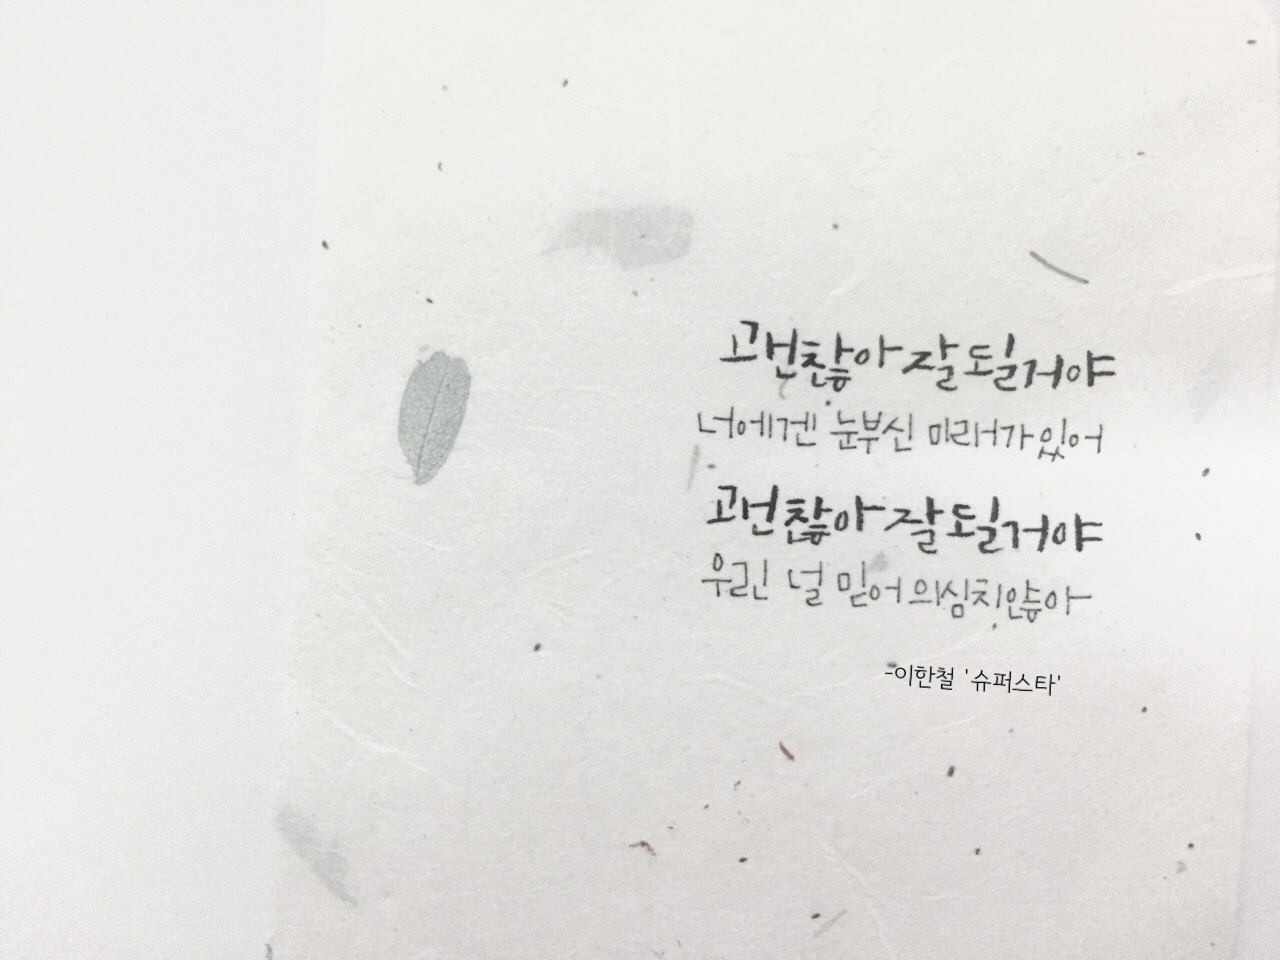 괜찮아 잘 될 거야
너에겐 눈부신 미래가 있어
괜찮아 잘 될 거야
우린 널 믿어 의심치 않아
-이한철 '슈퍼스타'